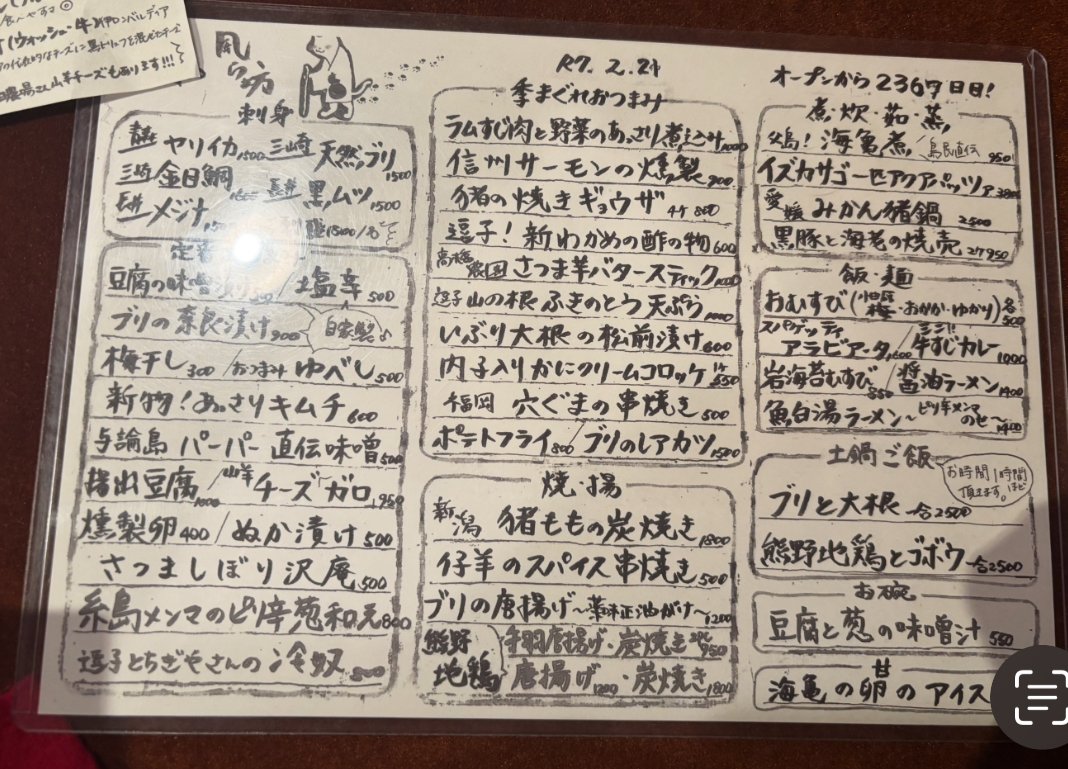 食べやすい◎
(ウォッシュ・牛)伊ロンバルディア
伝統的なチーズに黒トリュフを混ぜたチーズ
山羊チーズもあります!!!
風らい坊
R7.2.21
オープンから2367日目!
刺身
ヤリイカ1500 三崎 天然ブリ1500
三崎 金目鯛 長井 黒ムツ1500
長井 メジナ
定番
豆腐の味噌漬け / 塩辛500
ブリの奈良漬け900 自家製♪
梅干し300/おつまみ ゆべし500
新物!あっさりキムチ600
与論島 パーパー直伝味噌500
指出豆腐1000/山羊チーズガロ1950
燻製卵400/ぬか漬け500
さつましぼり沢庵500
糸島メンマのピリ辛葱和え800
逗子とちぎやさんの冷奴500
季まぐれおつまみ
ラムすじ肉と野菜のあっさり煮込み1000
信州サーモンの燻製900
猪の焼きギョウザ4ケ800
逗子!新わかめの酢の物600
高橋農園 さつま芋バタースティック1000
逗子山の根ふきのとう天ぷら1000
いぶり大根の松前漬け600
内子入りかにクリームコロッケ1ケ550
福岡 穴ぐまの串焼き500
ポテトフライ800/ブリのレアカツ1500
焼・揚
新潟 猪ももの炭焼き1800
仔羊のスパイス串焼き500
ブリの唐揚げ〜薬味正油がけ〜1200
熊野地鶏 手羽唐揚げ・炭焼き2P950
唐揚げ1200・炭焼き1800
煮・炊・茹・蒸
父島!海亀煮 島民直伝 950
イズカサゴ一匹アクアパッツァ3800
愛媛 みかん猪鍋2500
黒豚と海老の焼売2ケ950
飯・麺
おむすび(梅・おかか・ゆかり)各500
スパゲッティアラビアータ1600/ミニ!!牛すじカレー1000
岩海苔むすび550/醤油ラーメン1400
魚白湯ラーメン〜ピリ辛メンマのせ〜1400
土鍋ご飯
お時間1時間ほど頂きます。
ブリと大根一合2500
熊野地鶏とゴボウ一合2500
お碗
豆腐と葱の味噌汁550
甘
海亀の卵のアイス